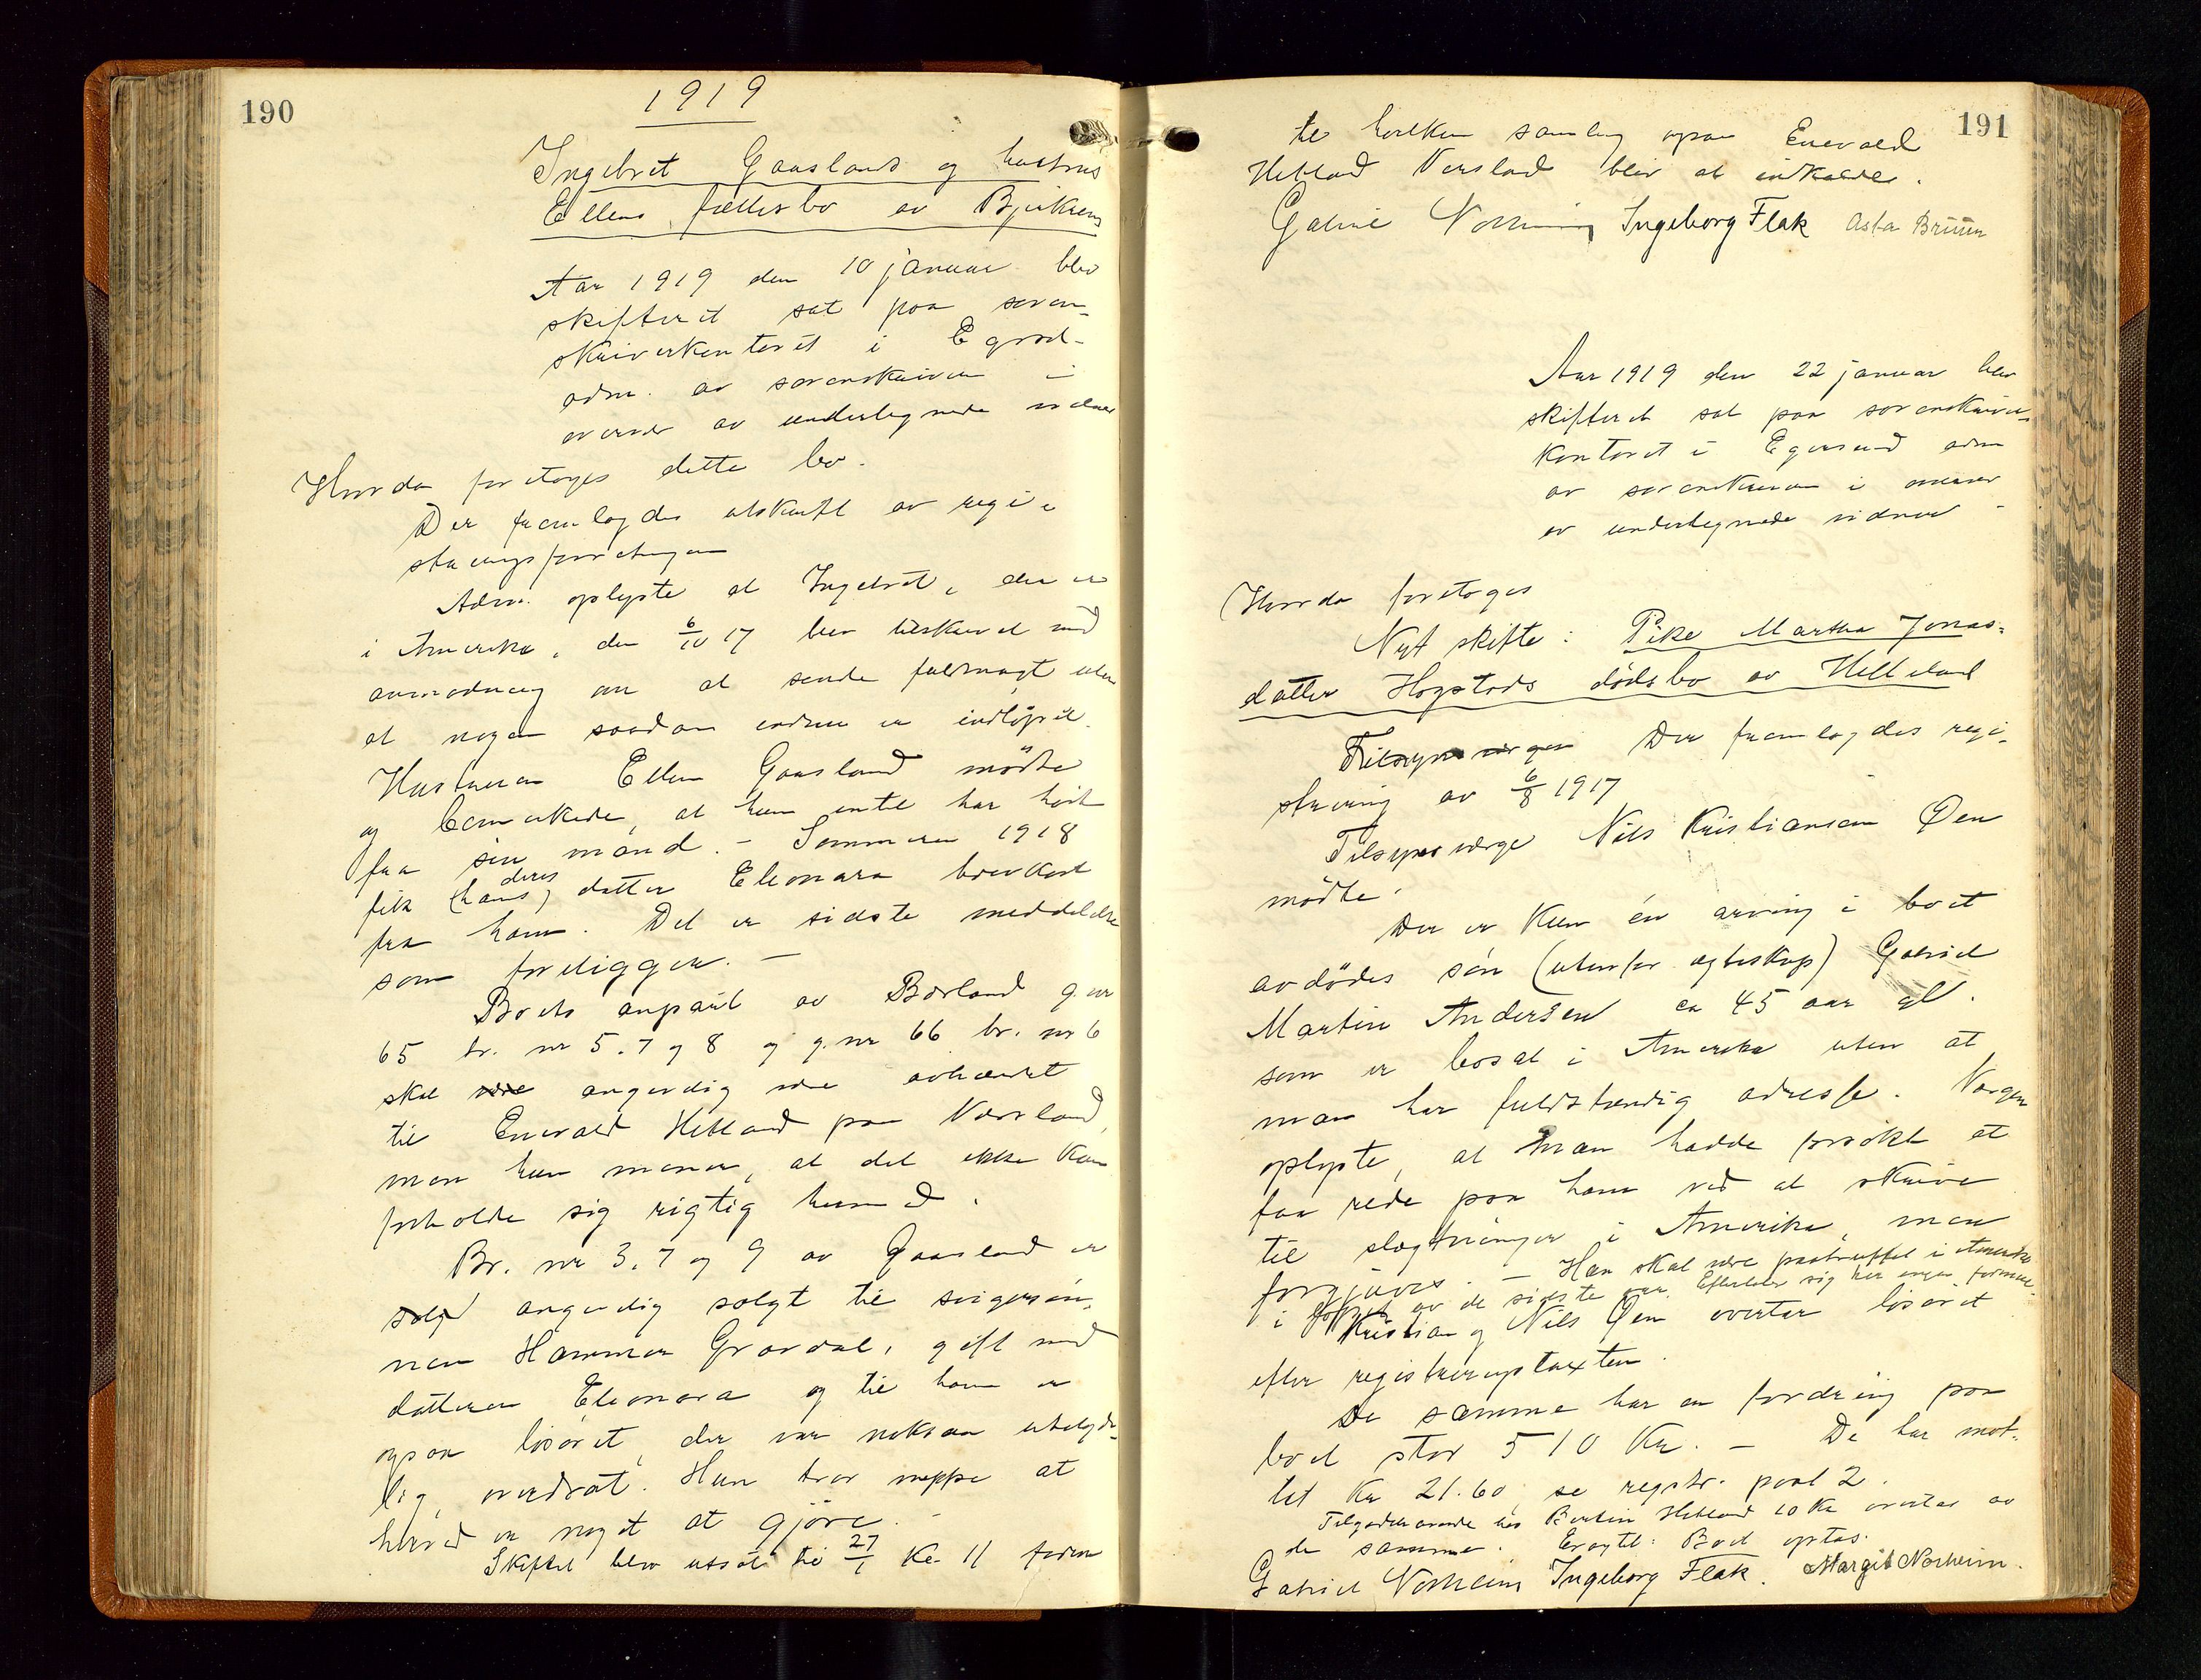 190
1919
Ingebret Gaaslands og hustrus
Ellens fællesbo av Bjerkrem
Aar 1919 den 10 januar blev
skifteret sat paa soren-
skriverkontoret i Egersd.
adm. av sorenskriveren i
overvær av undertegnede vidner
Hvorda foretoges dette bo.
Der fremlagdes utskrift av regi-
streringsforretningen
Adm. oplyste at Ingebret, der er
i Amerika, den 6/10 17 blev tilskrevet med
anmodning om at sende fuldmagt uten
at nogen saadan endnu er indløpet.
Hustruen Ellen Gaasland mødte
og bemerkede, at hun intet har hørt
fra sin mand. – Sommeren 1918
fik (hans) deres datter Eleonara brevkort
fra ham. Det er sidste meddelelse
som foreligger. –
Boets anpart av Børland g. nr
65 br. nr 5. 7 og 8 og g. nr 66 br. nr 6
skal være angivelig være avhændet
til Enevald Hetland paa Versland,
men hun mener, at det ikke kan
forholde sig rigtig hermed.
Br. nr 3, 7 og 9 av Gaasland er
solgt angivelig solgt til svigersøn-
nen Hammer Gravdal, gift med
datteren Eleonora og til ham er
ogsaa løsøret, der var noksaa ubetyde-
lig, overdrat. Hun tror neppe at
herved er noget at gjøre. –
Skiftet blev utsat til 27/1 kl. 11 form
191
til hvilken samling ogsaa Enevald
Hetland Versland blir at indkalde.
Gabriel Norheim Ingeborg Flak Asta Bruun
Aar 1919 den 22 januar blev
skifteret sat paa sorenskriver-
kontoret i Egersund adm
av sorenskriveren i overvær
av undertegnede vidner –
Hvorda foretoges
Nyt skifte: Pike Martha Jonas-
datter Hogstads dødsbo av Helleland
Tilsynsvergen Der fremlagdes regi-
strering av 6/8 1917
Tilsynsverge Nils Kristiansen Øen
mødte.
Der er kun én arving i boet
avdødes søn (utenfor egteskap) Gabriel
Martin Andersen ca 45 aar gl.
som er bosat i Amerika uten at
man har fuldstændig adresse. Vergen
oplyste, at man hadde forsøkt at
faa rede paa ham ved at skrive
til slegtninger i Amerika, men
forgjæves. – Han skal være paatruffet i Amerika
i løpet av de sidste aar. Efterlater sig her ingen formue.
Kristian og Nils Øen overtar løsøret
efter registreringstaxten.
De samme har en fordring paa
boet stor 510 Kr. – De har mot-
tat Kr 21.60, se registr. post 2.
Tilgodehavende hos Bertin Hetland 10 Kr overtas av
de samme. Boet optas.
Gabriel Norheim Ingeborg Flak. Margit Norheim.